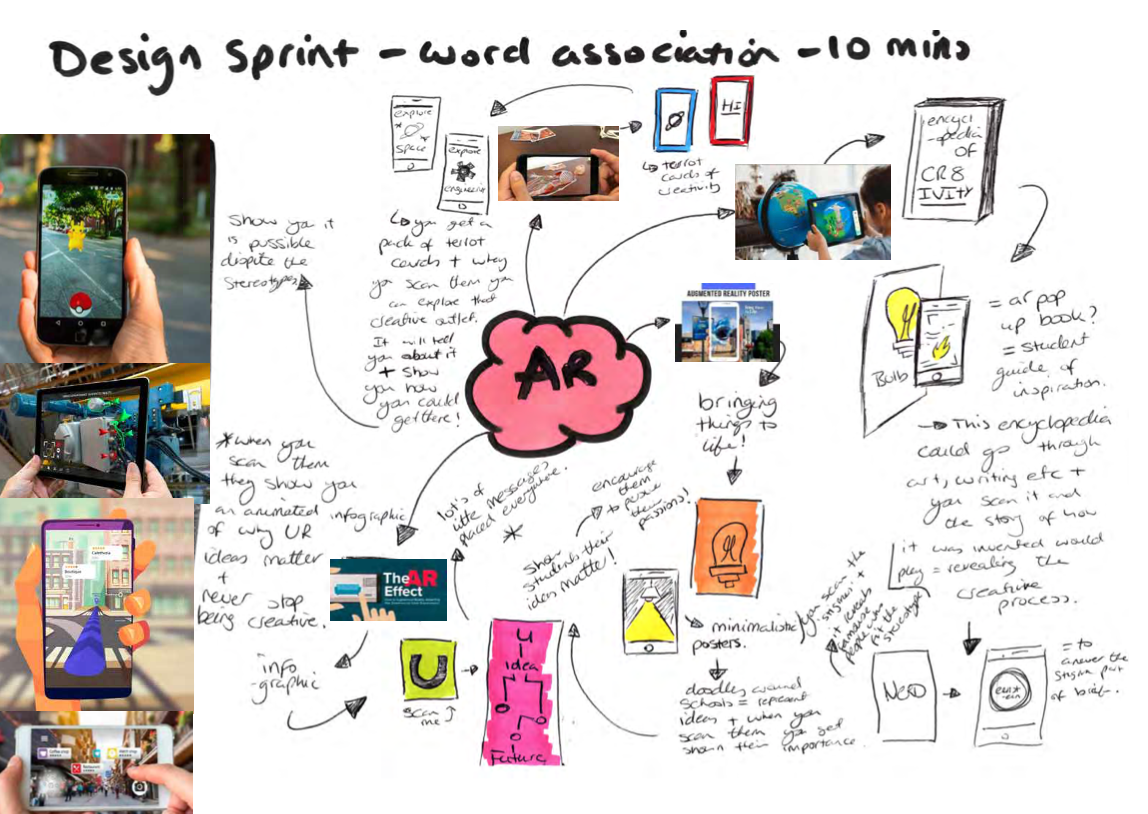 Design Sprint - word association - 10 mins
explore
space
explore
engineering
HI
↳ terrot
cards of
creativity
encycl
-opedia
OF
CR8
IVITY
show you it
is possible
dispite the
stereotypes
↳ you get a
pack of terrot
cards + when
you scan them you
can explore that
creative outlet.
It will tell
you about it
+ show
you how
you could
get there!
AUGMENTED REALITY POSTER
AR
Bulb
= ar pop
up book?
= student
guide of
inspiration.
bringing
things to
life!
→ This encyclopedia
could go through
art, writing etc +
you scan it and
the story of how
it was invented would
play = revealing the
creative
process.
* when you
scan them
they show you
an animated infographic
of why UR
ideas matter
+
never stop
being creative.
lot's of
little messages?
placed everywhere.
*
encourage
them
to pursue
their
passions!
show
students their
ideas matter!
The AR
Effect
info
-graphic
U
scan
me
U
idea
Future
minimalistic
posters.
you scan the
insult +
it reveals
famous
people who
fit the
stereotype
doodles around
schools = represent
ideas + when you
scan them you get
shown their importance.
NERD
= to
answer the
stigma part
of brief.